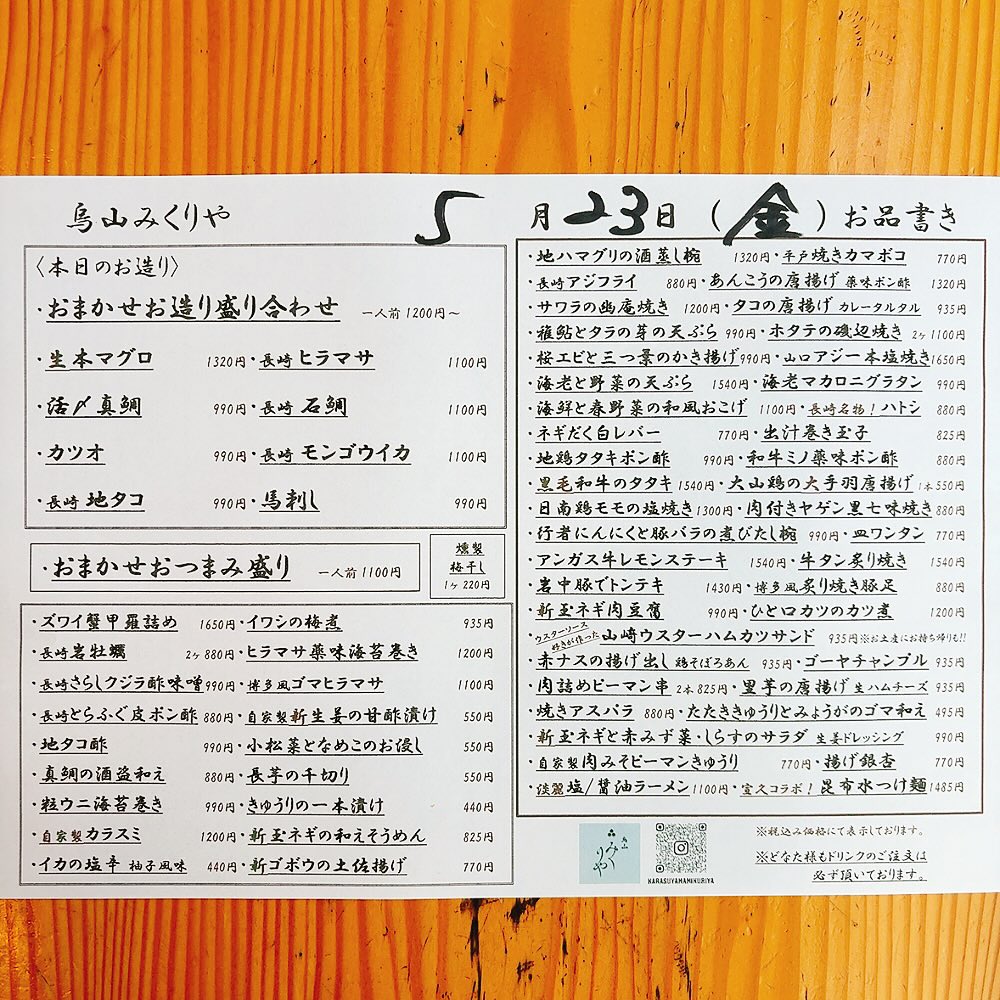 烏山みくりや 5月23日(金)お品書き
〈本日のお造り〉
・おまかせお造り盛り合わせ 一人前1200円〜
・生本マグロ 1320円・長崎ヒラマサ 1100円
・活〆真鯛 990円・長崎石鯛 1100円
・カツオ 990円・長崎モンゴウイカ 1100円
・長崎地タコ 990円・馬刺し 990円
・おまかせおつまみ盛り 一人前1100円
燻製
梅干し
1ヶ220円
・ズワイ蟹甲羅詰め 1650円・イワシの梅煮 935円
・長崎岩牡蠣 2ヶ880円・ヒラマサ薬味海苔巻き 1200円
・長崎さらしクジラ酢味噌 990円・博多風ゴマヒラマサ 1100円
・長崎とらふぐ皮ポン酢 880円・自家製新生姜の甘酢漬け 550円
・地タコ酢 990円・小松菜となめこのお浸し 550円
・真鯛の酒盗和え 880円・長芋の千切り 550円
・粒ウニ海苔巻き 990円・きゅうりの一本漬け 440円
・自家製カラスミ 1200円・新玉ネギの和えそうめん 825円
・イカの塩辛 柚子風味 440円・新ゴボウの土佐揚げ 770円
・地ハマグリの酒蒸し椀 1320円・平戸焼きカマボコ 770円
・長崎アジフライ 880円・あんこうの唐揚げ 薬味ポン酢 1320円
・サワラの幽庵焼き 1200円・タコの唐揚げ カレータルタル 935円
・稚鮎とタラの芽の天ぷら 990円・ホタテの磯辺焼き 2ヶ1100円
・桜エビと三つ葉のかき揚げ 990円・山口アジ一本塩焼き 1650円
・海老と野菜の天ぷら 1540円・海老マカロニグラタン 990円
・海鮮と春野菜の和風おこげ 1100円・長崎名物!ハトシ 880円
・ネギだく白レバー 770円・出汁巻き玉子 825円
・地鶏タタキポン酢 990円・和牛ミノ薬味ポン酢 880円
・黒毛和牛のタタキ 1540円・大山鶏の大手羽唐揚げ 1本550円
・日南鶏モモの塩焼き 1300円・肉付きヤゲン黒七味焼き 880円
・行者にんにくと豚バラの煮びたし椀 990円・皿ワンタン 770円
・アンガス牛レモンステーキ 1540円・牛タン炙り焼き 1540円
・岩中豚でトンテキ 1430円・博多風炙り焼き豚足 880円
・新玉ネギ肉豆腐 990円・ひと口カツのカツ煮 1200円
・ウスターソース好きが作った 山崎ウスターハムカツサンド 935円※お土産にお持ち帰りも!!
・赤ナスの揚げ出し 鶏そぼろあん 935円・ゴーヤチャンプル 935円
・肉詰めピーマン串 2本825円・里芋の唐揚げ 生ハムチーズ 935円
・焼きアスパラ 880円・たたききゅうりとみょうがのゴマ和え 495円
・新玉ネギと赤みず菜・しらすのサラダ 生姜ドレッシング 990円
・自家製肉みそピーマンきゅうり 770円・揚げ銀杏 770円
・淡麗塩/醤油ラーメン 1100円・宝久コラボ!昆布水つけ麺 1485円
烏山
みくりや
KARASUYAMAMIKURIYA
※税込み価格にて表示しております。
※どなた様もドリンクのご注文は
必ず頂いております。